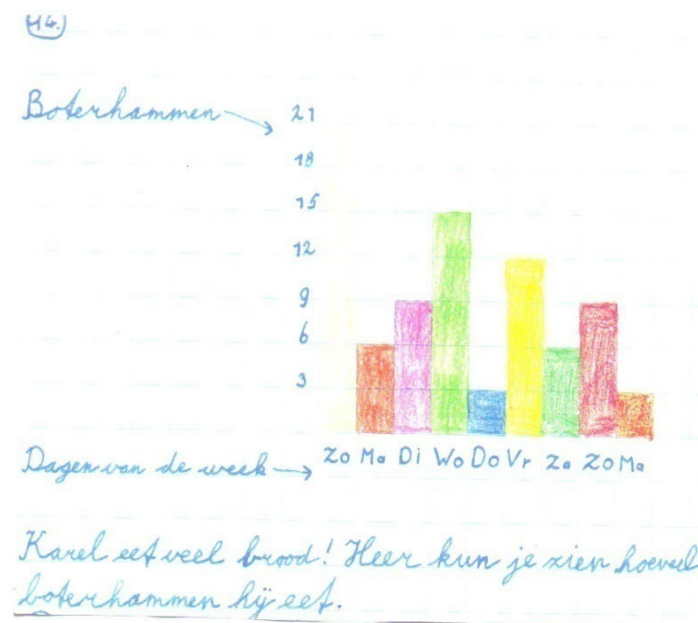 14.
Boterhammen
21
18
15
12
9
6
3
Dagen van de week
Zo Ma Di Wo Do Vr Za Zo Ma
Karel eet veel brood! Heer kun je zien hoeveel
boterhammen hij eet.